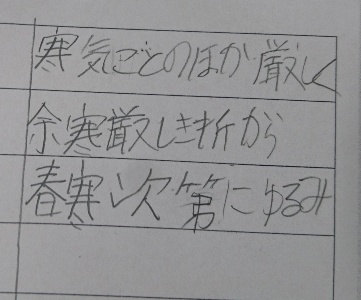 寒気ごとのほか厳しく
余寒厳しき折から
春寒次第にゆるみ